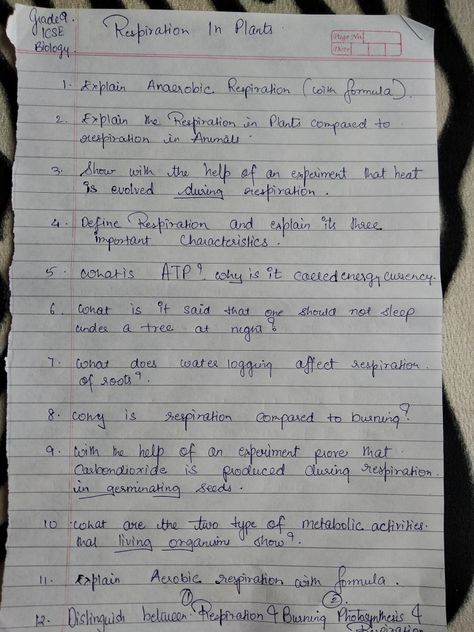 Grade 9.
ICSE
Biology.
Respiration In Plants.
Page No.
Date
1. Explain Anaerobic Respiration (with formula).
2. Explain the Respiration in Plants compared to
respiration in Animals.
3. Show with the help of an experiment that heat
is evolved during respiration.
4. Define Respiration and explain its three
important characteristics.
5. what is ATP? why is it called energy currency.
6. what is it said that one should not sleep
under a tree at night?
7. what does water logging affect respiration
of roots?
8. why is respiration compared to burning?
9. with the help of an experiment prove that
Carbondioxide is produced during respiration
in germinating seeds.
10. what are the two type of metabolic activities.
that living organism show?
11. Explain Aerobic respiration with formula.
12. Distinguish between ① Respiration & Burning ② Photosynthesis &
Respiration